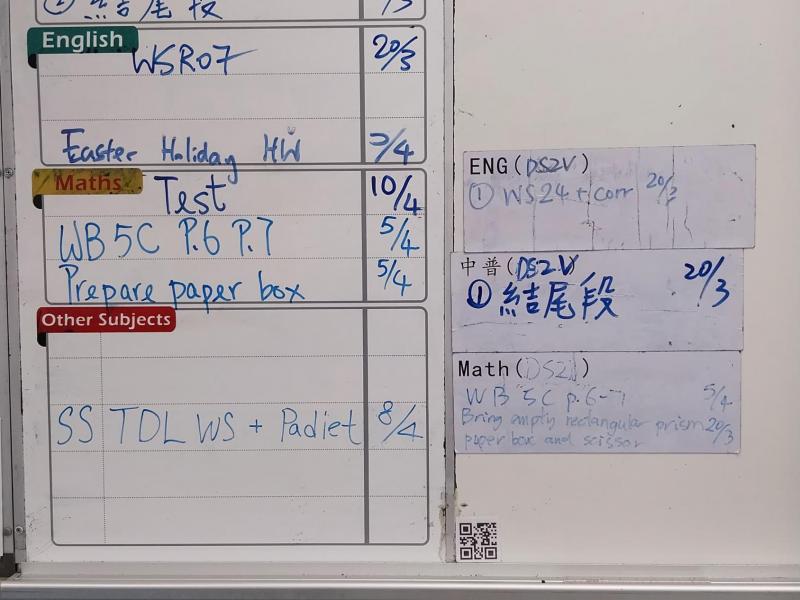 ② 結尾段
English
WSR07 20/3
Easter Holiday HW /4
Maths
Test 10/4
WB 5C P.6 P.7 5/4
Prepare paper box 5/4
Other Subjects
SS TDL WS + Padlet 8/4
ENG(DS2V)
① WS24 + corr 20/3
中普(DS2V)
① 結尾段 20/3
Math(DS2V)
WB 5C p.6-7 5/4
Bring empty rectangular prism 20/3
paper box and scissor